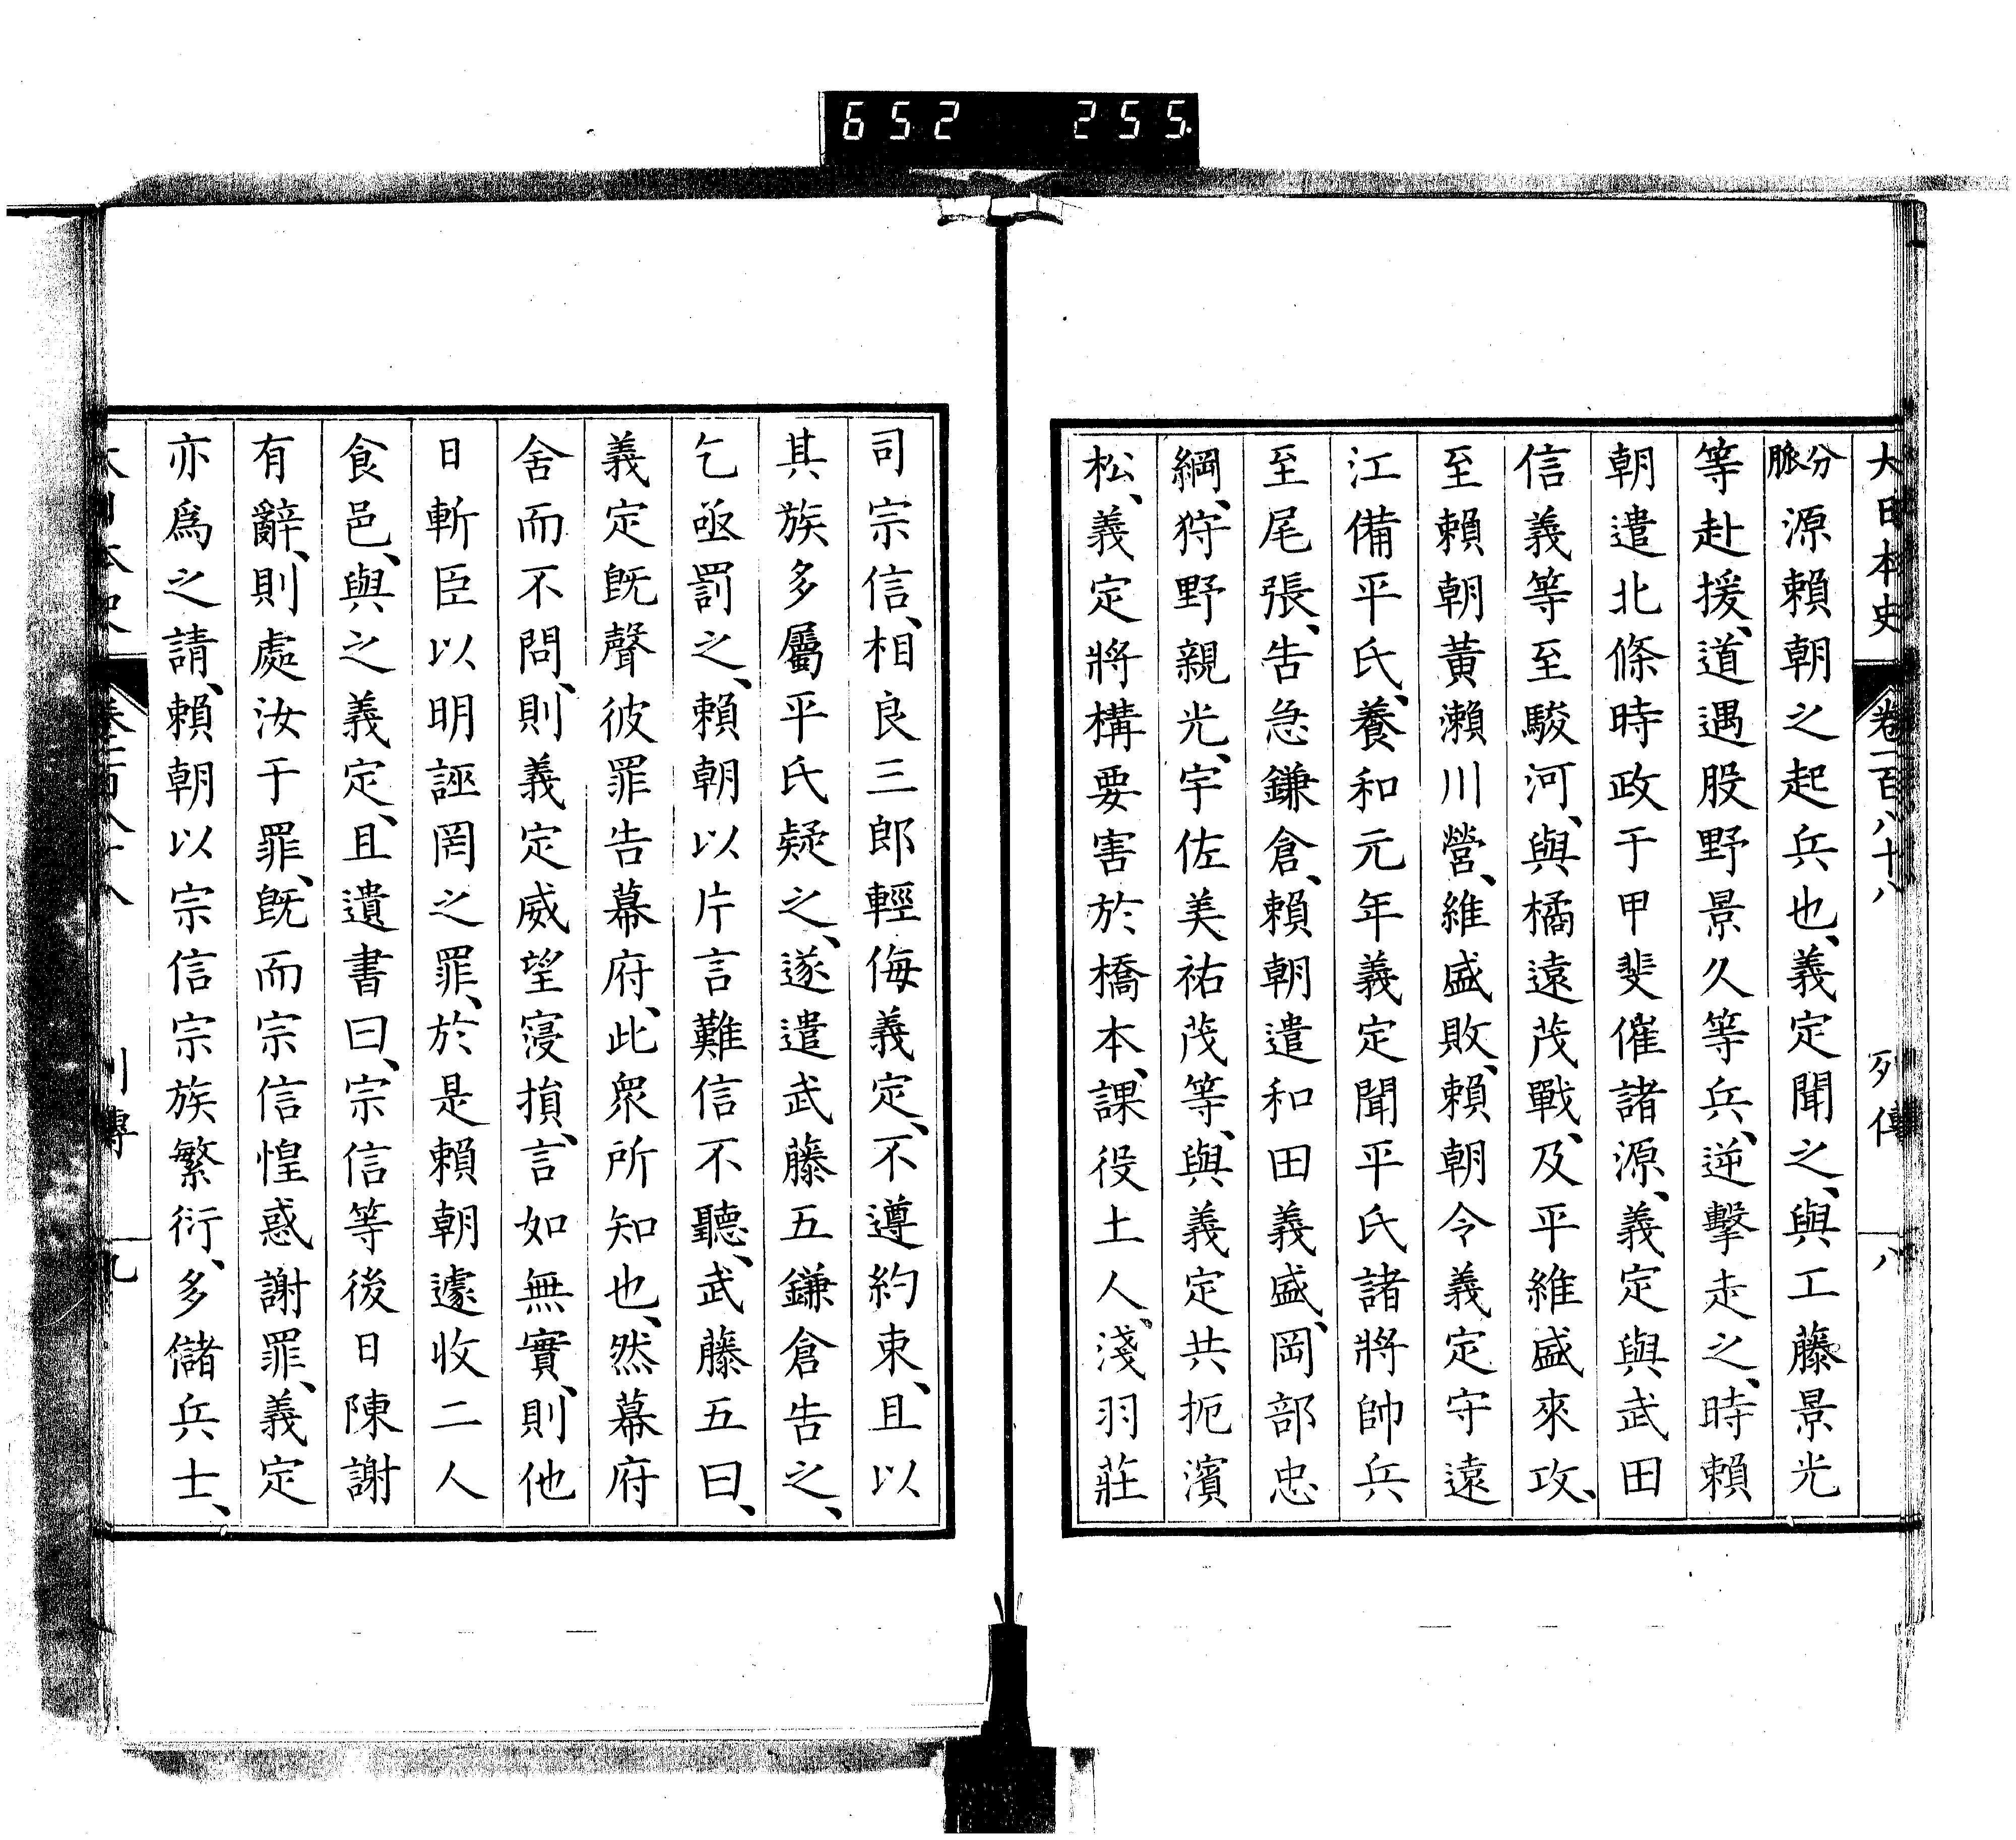 652 255
大日本史 卷一百八十八 列傳 八
分脈 源賴朝之起兵也、義定聞之、與工藤景光
等赴援、道遇股野景久等兵、逆擊走之、時賴
朝遣北條時政于甲斐催諸源、義定與武田
信義等至駿河、與橘遠茂戰、及平維盛來攻、
至賴朝黃瀨川營、維盛敗、賴朝令義定守遠
江備平氏、養和元年義定聞平氏諸將帥兵
至尾張、告急鎌倉、賴朝遣和田義盛、岡部忠
綱、狩野親光、宇佐美祐茂等、與義定共扼濱
松、義定將構要害於橋本、課役土人、淺羽莊
司宗信、相良三郎輕侮義定、不遵約束、且以
其族多屬平氏疑之、遂遣武藤五鎌倉告之、
乞亟罰之、賴朝以片言難信不聽、武藤五曰、
義定旣聲彼罪告幕府、此衆所知也、然幕府
舍而不問、則義定威望寖損、言如無實、則他
日斬臣以明誣罔之罪、於是賴朝遽收二人
食邑、與之義定、且遺書曰、宗信等後日陳謝
有辭、則處汝于罪、旣而宗信惶惑謝罪、義定
亦爲之請、賴朝以宗信宗族繁衍、多儲兵士、